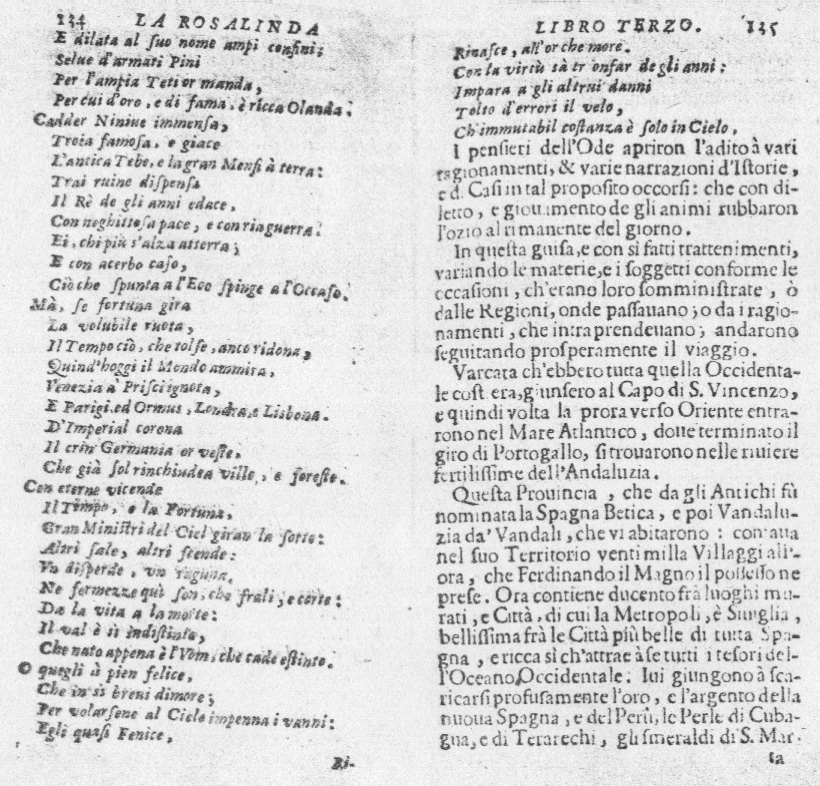 134 LA ROSALINDA
E dilata al ſuo nome ampi confini;
Selue d'armati Pini
Per l'ampia Teti or manda,
Per cui d'oro, e di fama, è ricca Olanda.
Cadder Niniue immenſa,
Troia famoſa, e giace
L'antica Tebe, e la gran Menfi à terra:
Trai ruine diſpenſa
Il Rè de gli anni edace,
Con neghittoſa pace, e con ria guerra.
Ei, chi più s'alza atterra;
E con acerbo caſo,
Ciò che ſpunta a l'Eoo ſpinge a l'Occaſo.
Mà, ſe fortuna gira
La volubile ruota,
Il Tempo ciò, che tolſe, anco ridona,
Quind'hoggi il Mondo ammira,
Venezia à Priſci ignota,
E Parigi, ed Ormus, Londra, e Lisbona.
D'Imperial corona
Il crin Germania or veſte,
Che già ſol rinchiudea ville, e foreſte.
Con eterne vicende
Il Tempo, e la Fortuna,
Gran Miniſtri del Ciel giran la ſorte:
Altri ſale, altri ſcende:
Vn diſperde, vn raguna,
Ne fermezze quì ſon, che frali, e corte:
Da la vita a la morte:
Il val è sì indiſtinto,
Che nato appena è l'Vom, che cade eſtinto.
O quegli à pien felice,
Che in sì breui dimore;
Per volarſene al Cielo impenna i vanni:
Egli quaſi Fenice,
Ri-
LIBRO TERZO. 135
Rinaſce, all'or che more.
Con la virtù sà tr onfar de gli anni;
Impara a gli altrui danni
Tolto d'errori il velo,
Ch'immutabil coſtanza è ſolo in Cielo.
I penſieri dell'Ode apriron l'adito à vari
ragionamenti, & varie narrazioni d'Iſtorie,
e d. Caſi in tal propoſito occorſi: che con di-
letto, e giouamento de gli animi rubbaron
l'ozio al rimanente del giorno.
In queſta guiſa, e con si fatti trattenimenti,
variando le materie, e i ſoggetti conforme le
occaſioni, ch'erano loro ſomminiſtrate, ò
dalle Regioni, onde paſſauano; o da i ragio-
namenti, che intraprendeuano; andarono
ſeguitando proſperamente il viaggio.
Varcata ch'ebbero tutta quella Occidenta-
le coſt era, giunſero al Capo di S. Vincenzo,
e quindi volta la prora verſo Oriente entra-
rono nel Mare Atlantico, doue terminato il
giro di Portogallo, ſi trouarono nelle riuiere
fertiliſſime dell'Andaluzia.
Queſta Prouincia, che da gli Antichi fù
nominata la Spagna Betica, e poi Vandalu-
zia da' Vandali, che vi abitarono: contaua
nel ſuo Territorio venti milla Villaggi all'-
ora, che Ferdinando il Magno il poſſeſſo ne
preſe. Ora contiene ducento frà luoghi mu-
rati, e Città, di cui la Metropoli, è Siuiglia,
belliſſima frà le Città più belle di tutta Spa-
gna, e ricca sì ch'attrae à ſe tutti i teſori del-
l'Oceano Occidentale. Iui giungono à ſca-
ricarſi profuſamente l'oro, e l'argento della
nuoua Spagna, e del Perù, le Perle di Cuba-
gua, e di Terarechi, gli ſmeraldi di S. Mar-
ta